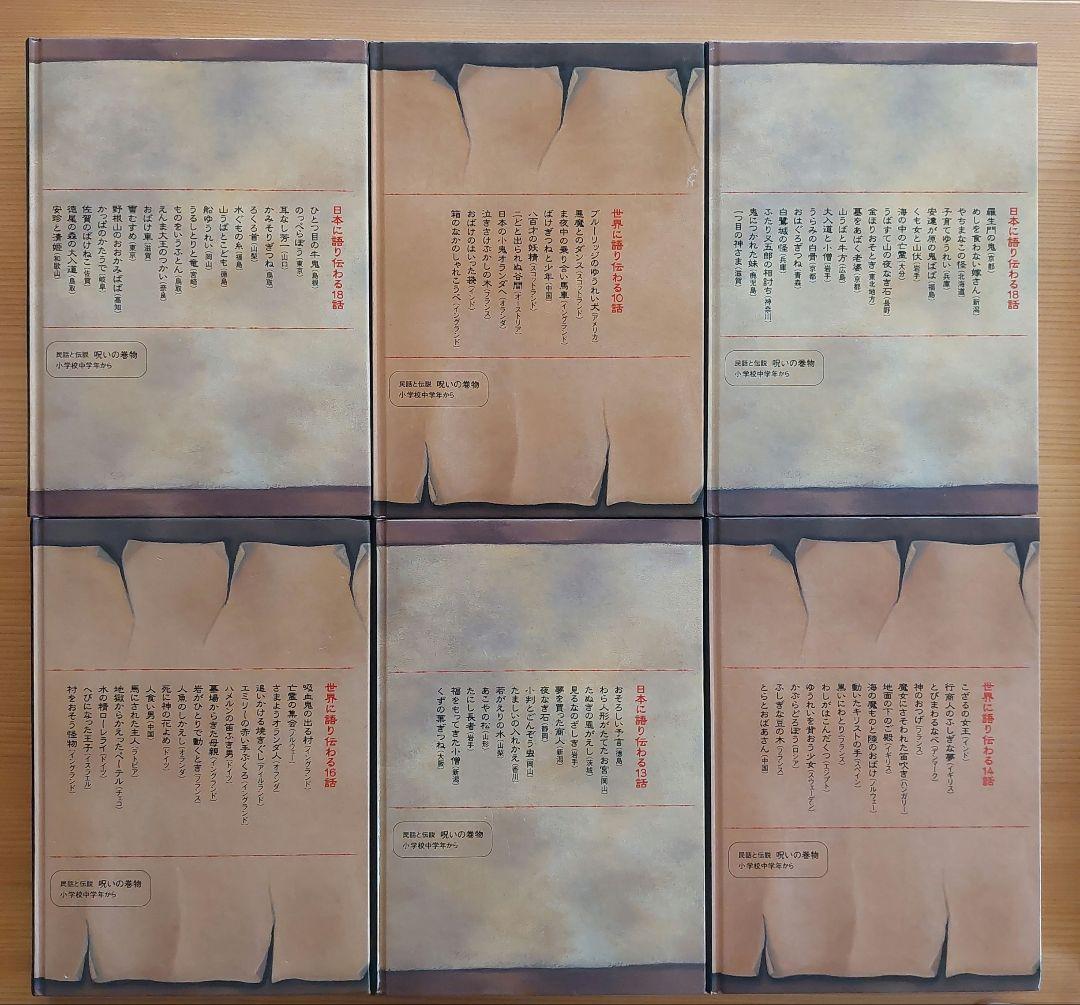 日本に語り伝わる18話
ひとつ目の牛鬼(島根)
のっぺらぼう(東京)
耳なし芳一(山口)
かみそりぎつね(鳥取)
ろくろ首(山梨)
水ぐもの糸(福島)
山うばとこども(徳島)
船ゆうれい(岡山)
うるしとりと竜(宮崎)
ものをいうふとん(鳥取)
えんま大王のつかい(奈良)
おばけ東(滋賀)
雪むすめ(東京)
野根山のおおかみばば(高知)
かっぱのかたうで(岐阜)
佐賀のばけねこ(佐賀)
徳尾の森の大入道(鳥取)
安珍と清姫(和歌山)
民話と伝説 呪いの巻物
小学校中学年から
世界に語り伝わる10話
ブルーリッジのゆうれい犬(アメリカ)
悪魔とのダンス(スコットランド)
ま夜中の乗り合い馬車(イングランド)
ばけぎつねと少年(中国)
八百才の妖精(スコットランド)
二どと出られぬ谷間(オーストリア)
日本の小鬼オランダへ(オランダ)
泣きさけぶかしの木(フランス)
おばけのはいった袋(インド)
箱のなかのしゃれこうべ(イングランド)
民話と伝説 呪いの巻物
小学校中学年から
日本に語り伝わる18話
羅生門の鬼(京都)
めしを食わない嫁さん(新潟)
やちまなこの怪(北海道)
子育てゆうれい(兵庫)
安達が原の鬼ばば(福島)
くも女と山伏(岩手)
海の中の亡霊(大分)
うばすて山の夜なき石(長野)
金ほりおそとき(東北地方)
墓をあばく老婆(京都)
山うばと牛方(広島)
大入道と小僧(岩手)
うらみの白骨(京都)
おはぐろぎつね(青森)
白鷺城の怪(兵庫)
ふたり又五郎の相討ち(神奈川)
鬼につかれた妹(鹿児島)
一つ目の神さま(滋賀)
民話と伝説 呪いの巻物
小学校中学年から
世界に語り伝わる16話
吸血鬼の出る村(イングランド)
亡霊の集会(ノルウェー)
さまようオランダ人(オランダ)
追いかける焼きぐし(アイルランド)
エミリーの赤い手ぶくろ(イングランド)
ハメルンの笛ふき男(ドイツ)
墓場からきた母親(イングランド)
岩がひとりで動くとき(フランス)
人魚のしかえし(オランダ)
死に神の花よめ(ドイツ)
人食い男(中国)
馬にされた主人(ラトビア)
地獄からかえったペーテル(チェコ)
水の精ローレライ(ドイツ)
へびになった王子(イスラエル)
村をおそう怪物(イングランド)
民話と伝説 呪いの巻物
小学校中学年から
日本に語り伝わる13話
おそろしい予言(徳島)
わら人形がたてたお宮(岡山)
たぬきの恩がえし(茨城)
見るなのざしき(岩手)
夢を買った商人(新潟)
夜なき石(静岡)
小判とごんぞう虫(岡山)
たましいの入れかえ(香川)
若がえりの水(山梨)
あこやのね(山形)
たにし長者(岩手)
福をもってきた小僧(新潟)
くずの葉ぎつね(大阪)
民話と伝説 呪いの巻物
小学校中学年から
世界に語り伝わる14話
こざるの女王(インド)
行商人のふしぎな夢(イギリス)
とびまわるなべ(デンマーク)
神のおつげ(フランス)
魔女にさそわれた笛吹き(ハンガリー)
地面の下のご殿(イギリス)
海の魔ものと陸のおばけ(ノルウェー)
動いたキリストの手(スペイン)
黒いにわとり(フランス)
わしがはこんだくつ(エジプト)
ゆうれいを背おう少女(スウェーデン)
かぶらどろぼう(ロシア)
ふしぎな豆の木(フランス)
とらとおばあさん(中国)
民話と伝説 呪いの巻物
小学校中学年から